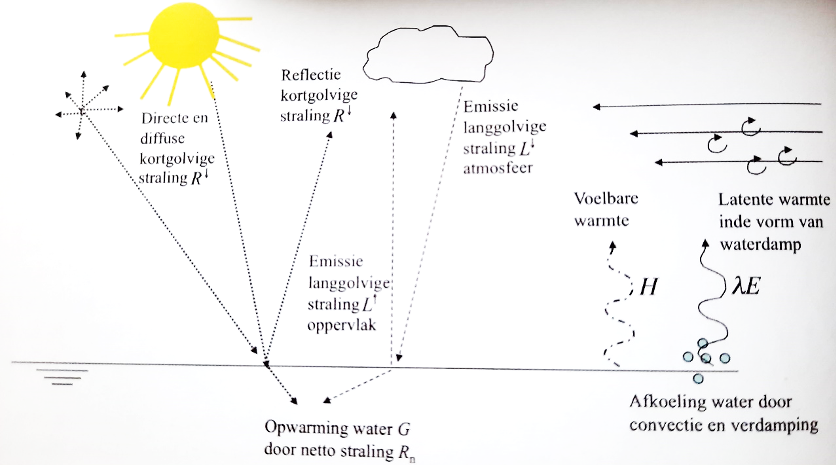 Directe en
diffuse
kortgolvige
straling R↓
Reflectie
kortgolvige
straling R↓
Emissie
langgolvige
straling L↓
atmosfeer
Emissie
langgolvige
straling L↑
oppervlak
Voelbare
warmte
H
Latente warmte
inde vorm van
waterdamp
λE
Opwarming water G
door netto straling Rn
Afkoeling water door
convectie en verdamping